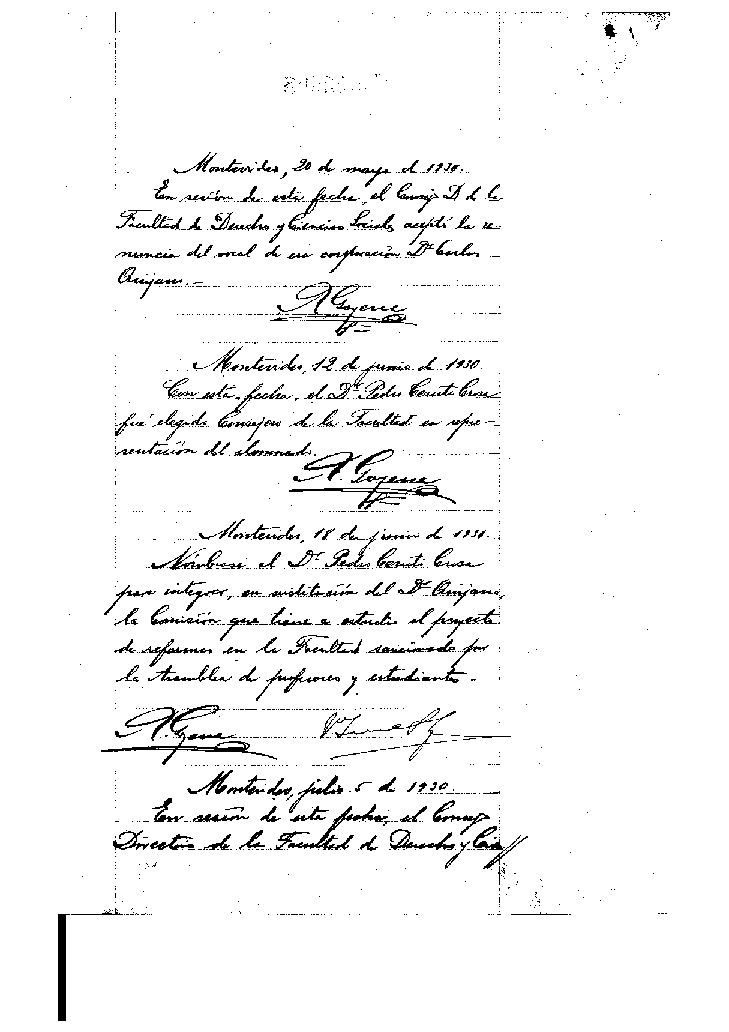 Montevideo, 20 de mayo de 1930.
En sesión de esta fecha, el Consejo D. de la
Facultad de Derecho y Ciencias Sociales, aceptó la re
nuncia del vocal de esa corporación Dr. Carlos
Quijano.
A. Goyena
Montevideo, 12 de junio de 1930
Con esta fecha, el Dr. Pedro Ceruti Crosa
fué elegido Consejero de la Facultad en repre-
sentación del alumnado.
A. Goyena
Montevideo, 18 de junio de 1930.
Nómbrase al Dr. Pedro Ceruti Crosa
para integrar, en sustitución del Dr. Quijano,
la Comisión que tiene a estudio el proyecto
de reformas en la Facultad sancionado por
la Asamblea de profesores y estudiantes.
A. Goyena
Montevideo, julio 5 de 1930
En sesión de esta fecha, el Consejo
Directivo de la Facultad de Derecho y Cien//